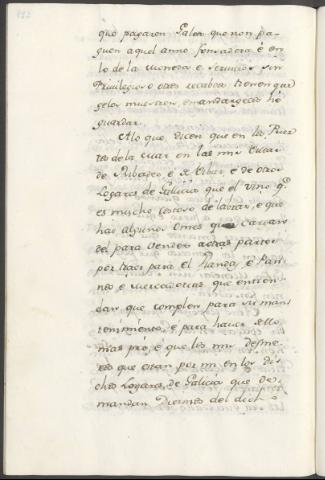 que pagaren Salvo que non pa-
guen aquel anno fonsadera è en
lo de la moneda e servicios sin
Privilegios o otros recabdos tienen que
gelos muestren, e mandargelos hé
guardar.
A lo que dicen que en las Puer-
tas de la mar en las mis Villas
de Ribadeo è de Vibero è de otros
Logares de Galicia que el vino q.
es mucho costoso de labrar, e que
hai algunos omes que cargan
del para vender a otras partes
por traer para el Pan, è Pan-
nos e mercadorias que entien-
dan que complen para su man-
tenimiento, è para haver dello
mas pró, è que los mis desme-
ros que estan por mi en los di-
chos Logares de Galicia que de-
mandan Diezmos del dicho